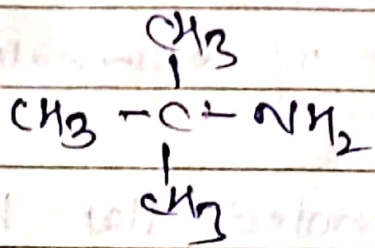 CH3
CH3 - C - NH2
CH3